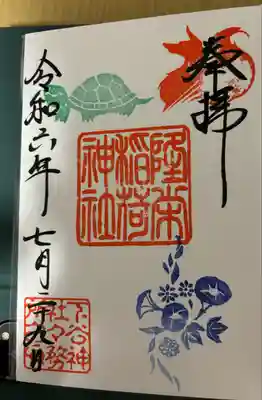 奉拝
隆栄
稲荷
神社
令和六年七月二十九日
下谷神
社々務